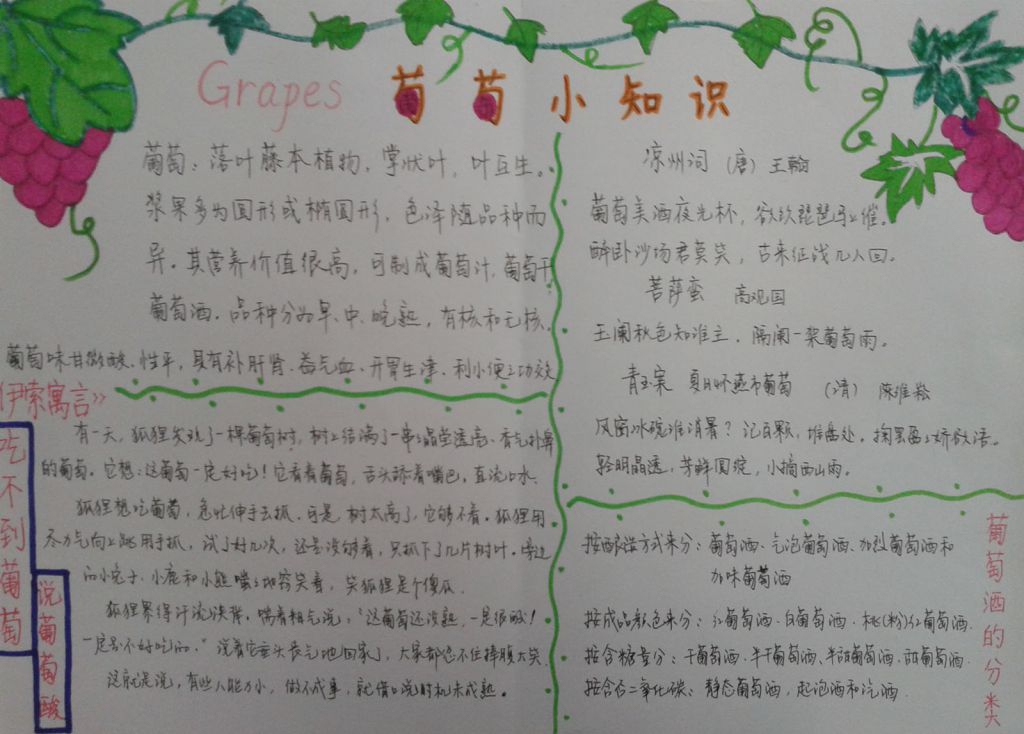 Grapes 葡萄小知识
葡萄、落叶藤本植物,掌状叶,叶互生。
浆果多为圆形或椭圆形,色泽随品种而
异。其营养价值很高,可制成葡萄汁,葡萄干
葡萄酒。品种分为早、中、晚熟,有核和无核。
葡萄味甘微酸、性平,具有补肝肾、益气血、开胃生津、利小便之功效
凉州词 (唐) 王翰
葡萄美酒夜光杯,欲饮琵琶马上催。
醉卧沙场君莫笑,古来征战几人回。
菩萨蛮 高观国
玉阑秋色知谁主,隔阑一架葡萄雨。
青玉案 夏日怀燕市葡萄 (清) 陈维崧
风窗冰碗谁消暑?记百颗,堆盘处。掬罢盈盈娇欲语。
轻明晶透,芳鲜圆绽,小摘西山雨。
伊索寓言》
吃不到葡萄
说葡萄酸
有一天,狐狸发现了一棵葡萄树,树上结满了一串串晶莹透亮、香气扑鼻
的葡萄。它想:这葡萄一定好吃!它看着葡萄,舌头舔着嘴巴,直流口水。
狐狸想吃葡萄,急忙伸手去抓。可是,树太高了,它够不着。狐狸用
尽力气向上跳用手抓,试了好几次,还是没够着,只抓下了几片树叶。旁边
的小兔子、小鹿和小熊嘴上哈哈笑着,笑狐狸是个傻瓜。
狐狸累得汗流浃背,喘着粗气说:“这葡萄还没熟,一定很酸!
一定是不好吃的。”说着它垂头丧气地回家了,大家都忍不住捧腹大笑。
这就是说,有些人能力小,做不成事,就借口说时机未成熟。
葡萄酒的分类
按酿造方式来分:葡萄酒、气泡葡萄酒、加烈葡萄酒和
加味葡萄酒
按成品颜色来分:红葡萄酒、白葡萄酒、桃(粉)红葡萄酒.
按含糖量分:干葡萄酒、半干葡萄酒、半甜葡萄酒、甜葡萄酒.
按含否二氧化碳:静态葡萄酒,起泡酒和汽酒.